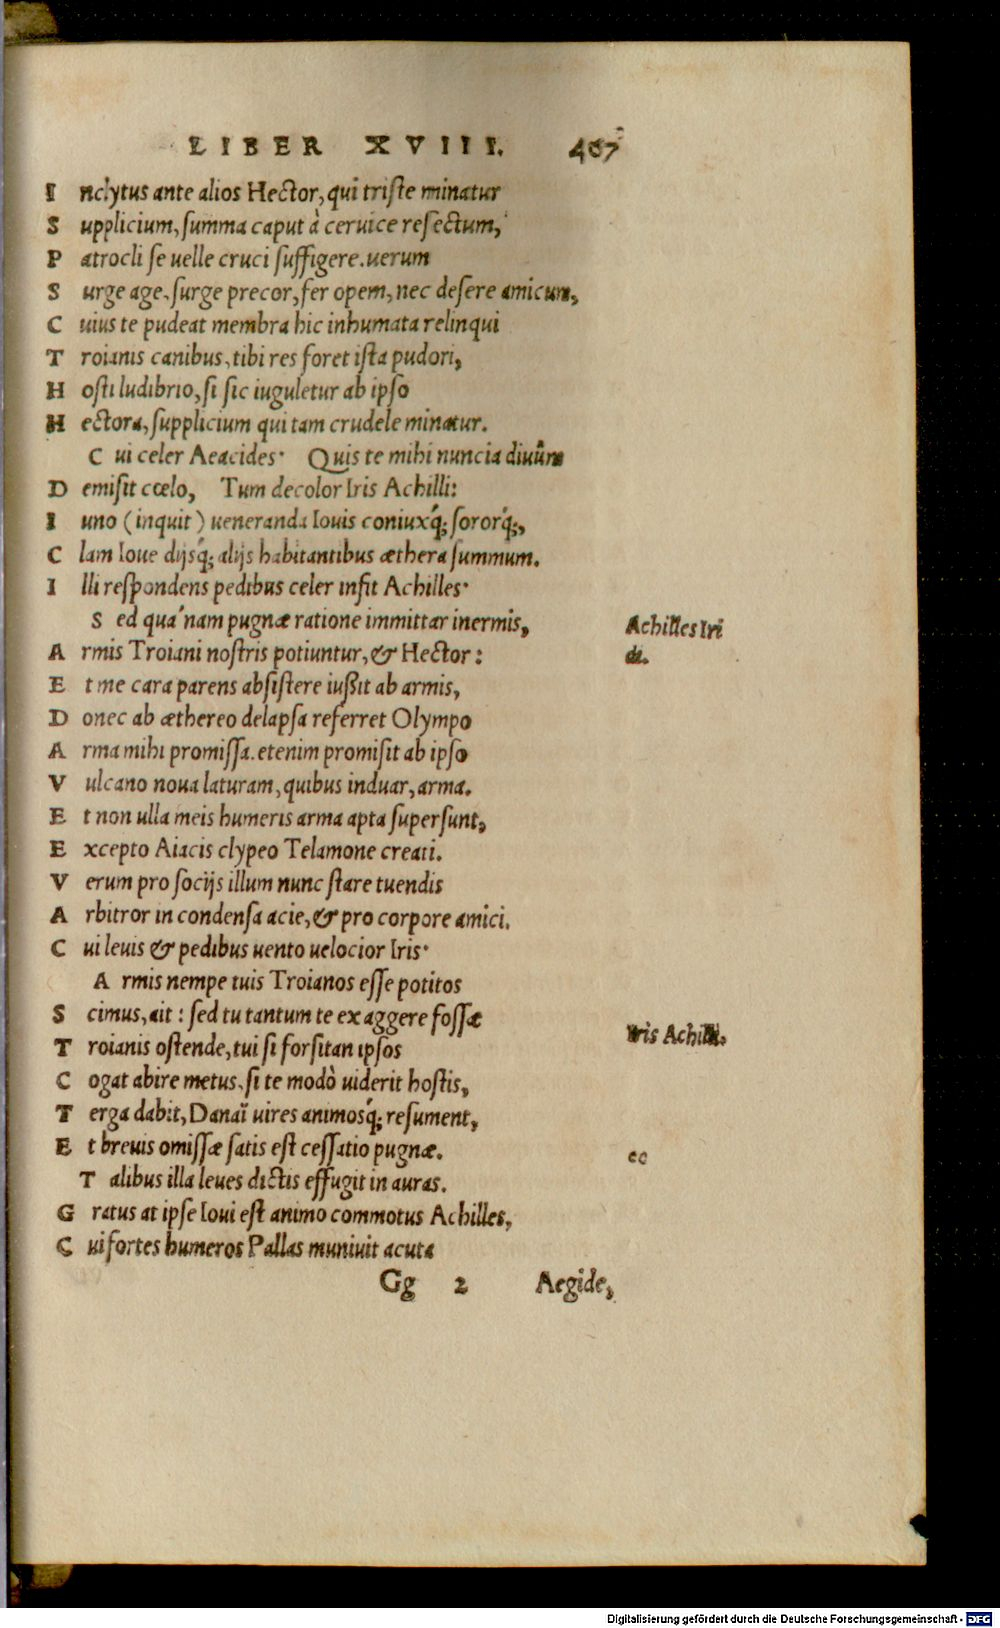 LIBER XVIII. 467
I nclytus ante alios Hector, qui triste minatur
S upplicium, summa caput à ceruice resectum,
P atrocli se uelle cruci suffigere. uerum
S urge age, surge precor, fer opem, nec desere amicum,
C uius te pudeat membra hic inhumata relinqui
T roianis canibus, tibi res foret ista pudori,
H osti ludibrio, si sic iuguletur ab ipso
H ectora, supplicium qui tam crudele minatur.
C ui celer Aeacides· Quis te mihi nuncia diuûm
D emisit cœlo, Tum decolor Iris Achilli:
I uno (inquit) ueneranda Iouis coniuxq́; sororq́;,
C lam Ioue dijsq́; alijs habitantibus æthera summum.
I lli respondens pedibus celer infit Achilles·
S ed quá nam pugnæ ratione immittar inermis,
Achilles Iri
di.
A rmis Troiani nostris potiuntur, & Hector:
E t me cara parens absistere iußit ab armis,
D onec ab æthereo delapsa referret Olympo
A rma mihi promissa. etenim promisit ab ipso
V ulcano noua laturam, quibus induar, arma.
E t non ulla meis humeris arma apta supersunt,
E xcepto Aiacis clypeo Telamone creati.
V erum pro socijs illum nunc stare tuendis
A rbitror in condensa acie, & pro corpore amici.
C ui leuis & pedibus uento uelocior Iris·
A rmis nempe tuis Troianos esse potitos
S cimus, ait: sed tu tantum te ex aggere fossæ
Iris Achilli.
T roianis ostende, tui si forsitan ipsos
C ogat abire metus, si te modò uiderit hostis,
T erga dabit, Danaï uires animosq́; resument,
E t breuis omissæ satis est cessatio pugnæ.
T alibus illa leues dictis effugit in auras.
G ratus at ipse Ioui est animo commotus Achilles,
C ui fortes humeros Pallas muniuit acuta
Gg 2 Aegide,
Digitalisierung gefördert durch die Deutsche Forschungsgemeinschaft - DFG